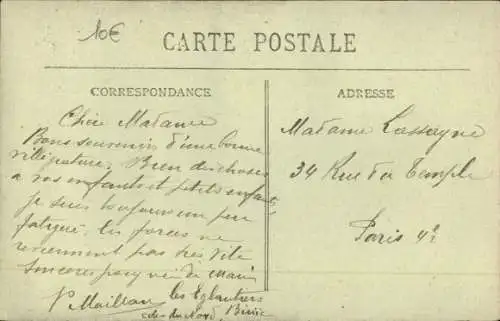 10€
CARTE POSTALE
CORRESPONDANCE
ADRESSE
Chère Madame
Bons souvenirs d'une bonne
villégiature. Bien des choses
a vos enfants et petits enfants,
je suis toujours un peu
fatigué. les forces ne
reviennent pas très vite
Sincères
de main
P Maillan
les Eglantiers
Madame Lassayne
34 Rue du Temple
Paris 4e